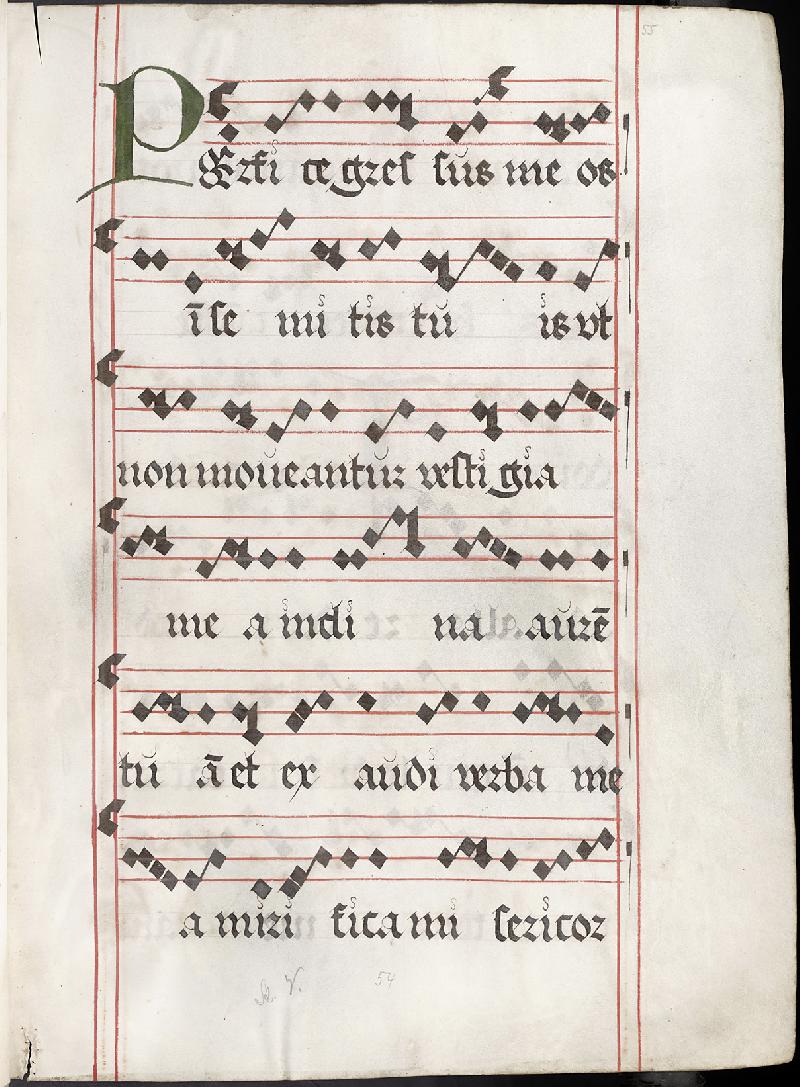 55
PErfi ce gres sus me os
ī se mi tis tu is vt
non moueantur vesti gia
me a incli na aurē
tu ā et ex audi verba me
a miri fica mi sericor
54